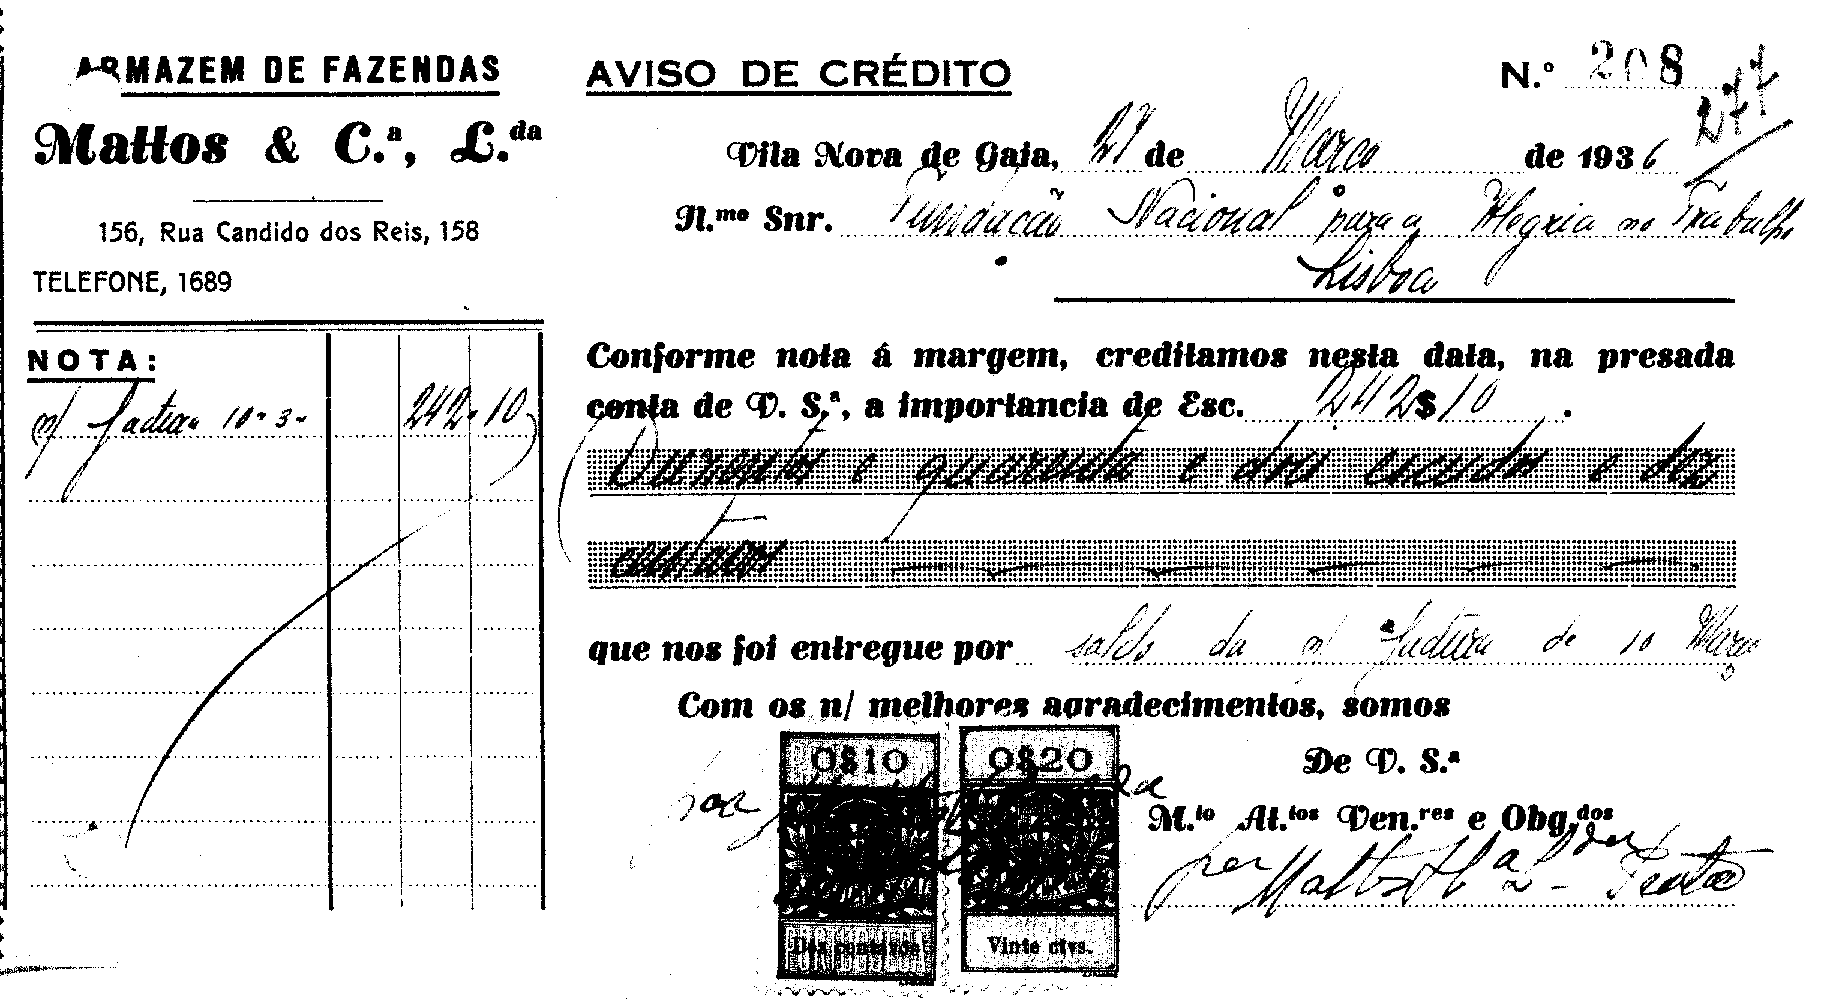 ARMAZEM DE FAZENDAS
Mattos & C.ª, L.da
156, Rua Candido dos Reis, 158
TELEFONE, 1689
NOTA:
n/ factura 10-3- 242-10
AVISO DE CRÉDITO
N.º 208
277
Vila Nova de Gaia, 27 de Março de 1936
Il.mo Snr. Fundação Nacional para a Alegria no Trabalho
Lisboa
Conforme nota á margem, creditamos nesta data, na presada
conta de V. S.ª, a importancia de Esc. 242$10.
(Duzentos e quarenta e dois escudos e dez
centavos
que nos foi entregue por saldo da n/ factura de 10 Março
Com os n/ melhores agradecimentos, somos
De V. S.ª
M.to At.tos Ven.res e Obg.dos
por Mattos & Cª L.da
0$10
Dez centavos
0$20
Vinte ctvs.
por